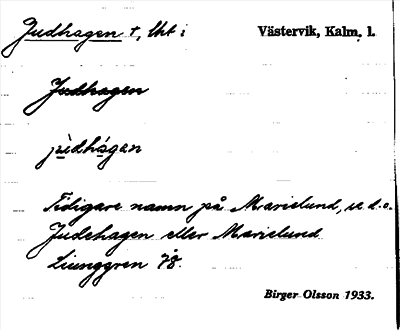 Judhagen †, lht i Västervik, Kalm. l.
Judhagen
jùdhágan
Tidigare namn på Marielund, se d.o.
Judehagen eller Marielund
Ljunggren 78.
Birger Olsson 1933.